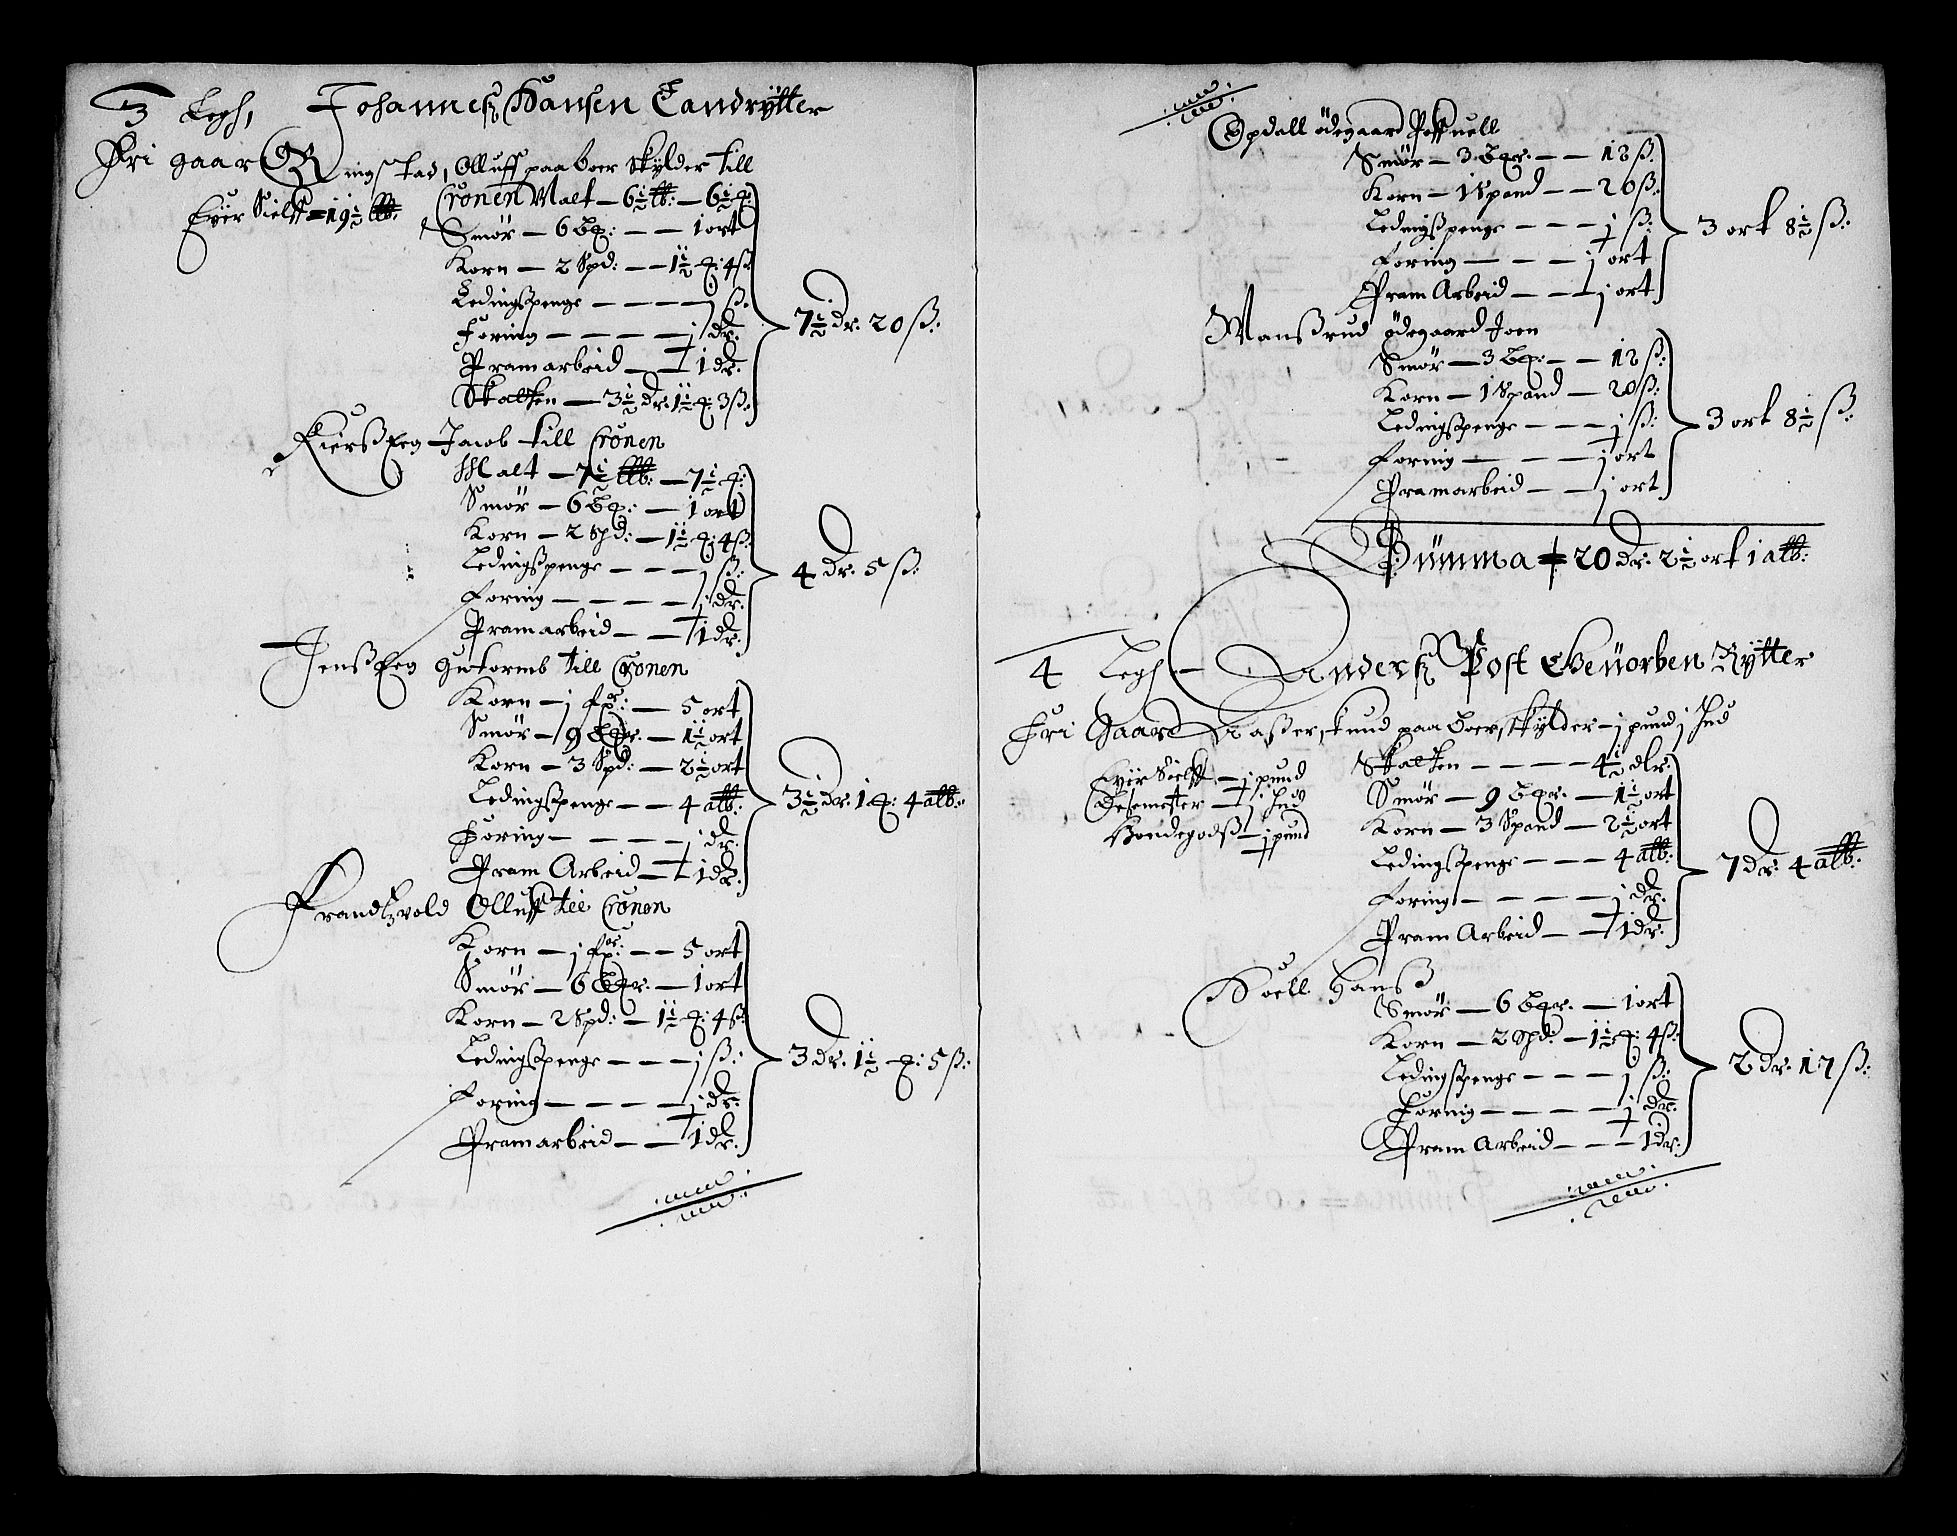 3 Legh, Johanneß Hansen Landrytter
Fri gaar Ringstad, Olluff paa boer skylder till
Eyer Sielff = 19½ ℔:
Cronen Malt — 6½ ℔: — 6½ ꝗ:
Smör — 6 Bꝗ: — — 1 ort
Korn — 2 Spd: — — 1½ ꝗ: 4 ß.
Ledingßpenge — — — — j ß.
Foring — — — — j dr.
Pramarbeid — — 1 dr.
Skatten — 3½ dr. 1½ ꝗ: 3 ß.
7½ dr. 20 ß.
Jacob till Cronen
Malt — 7½ ℔: — 7½ ꝗ:
Smör — 6 Bꝗ: — 1 ort
Korn — 2 Spd: — 1½ ꝗ: 4 ß.
Ledingßpenge — — — j ß.
Foring — — — — j dr.
Pramarbeid — — 1 dr.
4 dr. 5 ß.
Jenßeeg gutormb till Cronen
Korn — j — 5 ort
Smör — 9 Bꝗr. — 1½ ort
Korn — 3 Spd: — 2½ ort
Ledingßpenge — — 4 alb:
Foring — — — — j dr.
Pram Arbeid — 1 dr.
3½ dr. 1 ꝗ: 4 alb:
Frandtzvold Olluff till Cronen
Korn — j — — 5 ort
Smör — 6 Bꝗr. — 1 ort
Korn — 2 Spd: — 1½ ꝗ: 4 ß.
Ledingßpenge — — — j ß.
Foring — — — — j dr.
Pramarbeid — — 1 dr.
3 dr. 1½ ꝗ: 5 ß.
Opdall ödegaard
Smör — 3 Bꝗr. — — 18 ß.
Korn — 1 Spand — — 20 ß.
Ledingßpenge — — — j ß.
Foring — — — j ort
Pram Arbeid — — j ort.
3 ort 8½ ß.
Manßrud ödegaard Joen
Smör — 3 Bꝗ: — — 18 ß.
Korn — 1 Spand — 20 ß.
Ledingßpenge — — — j ß.
Foring — — — — j ort
Pramarbeid — — j ort
3 ort 8½ ß.
Summa = 20 dr. 2½ ort 1 alb:
4 Legh — Anderß Post Gevorben Rytter
Fri Gaard paa boer, skylder — j pund j hud
Eyer Sielff — j pund
— j hud
Bondegodß — j pund
Skatten — — — — 4½ dlr.
Smör — 9 Bꝗr. — 1½ ort
Korn — 3 Spand — 2½ ort
Ledingßpenge — — — 4 alb:
Foring — — — — j dr.
Pram Arbeid — — 1 dr.
7 dr. 4 alb:
Hoell Hanß
Smör — 6 Bꝗr. — 1 ort
Korn — 2 Spd: — 1½ ꝗ: 4 ß.
Ledingßpenge — — — j ß.
Foring — — — — j dr.
Pram Arbeid — — — 1 dr.
2 dr. 17 ß.